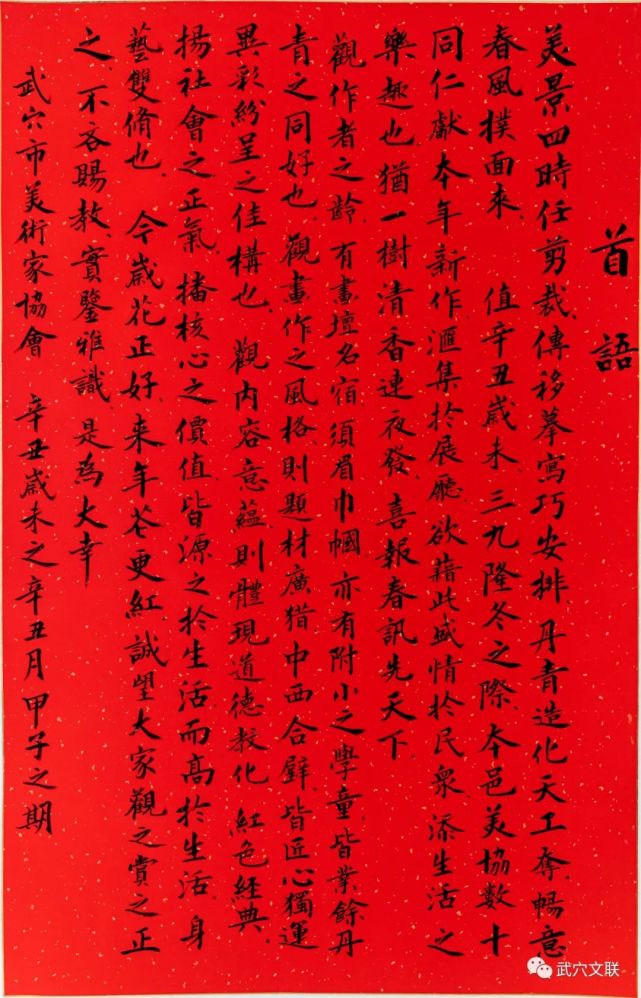 首語
美景四時任剪裁傳移摹寫巧安排丹青造化天工奪暢意
春風撲面來 值辛丑歲末三九隆冬之際本邑美協數十
同仁獻本年新作滙集於展廳欲藉此盛情於民衆添生活之
樂趣也猶一樹清香連夜發喜報春訊先天下
觀作者之齡有畫壇名宿須眉巾幗亦有附小之學童皆業餘丹
青之同好也觀畫作之風格則題材廣猎中西合璧皆匠心獨運
異彩紛呈之佳構也觀内容意蘊則體現道德教化紅色經典
揚社會之正氣播核心之價值皆源之於生活而高於生活身
藝雙脩也 今歲花正好来年花更紅誠望大家觀之賞之正
之不吝賜教實鑒雅識是為大幸
武穴市美術家協會 辛丑歲末之辛丑月甲子之期
武穴文联